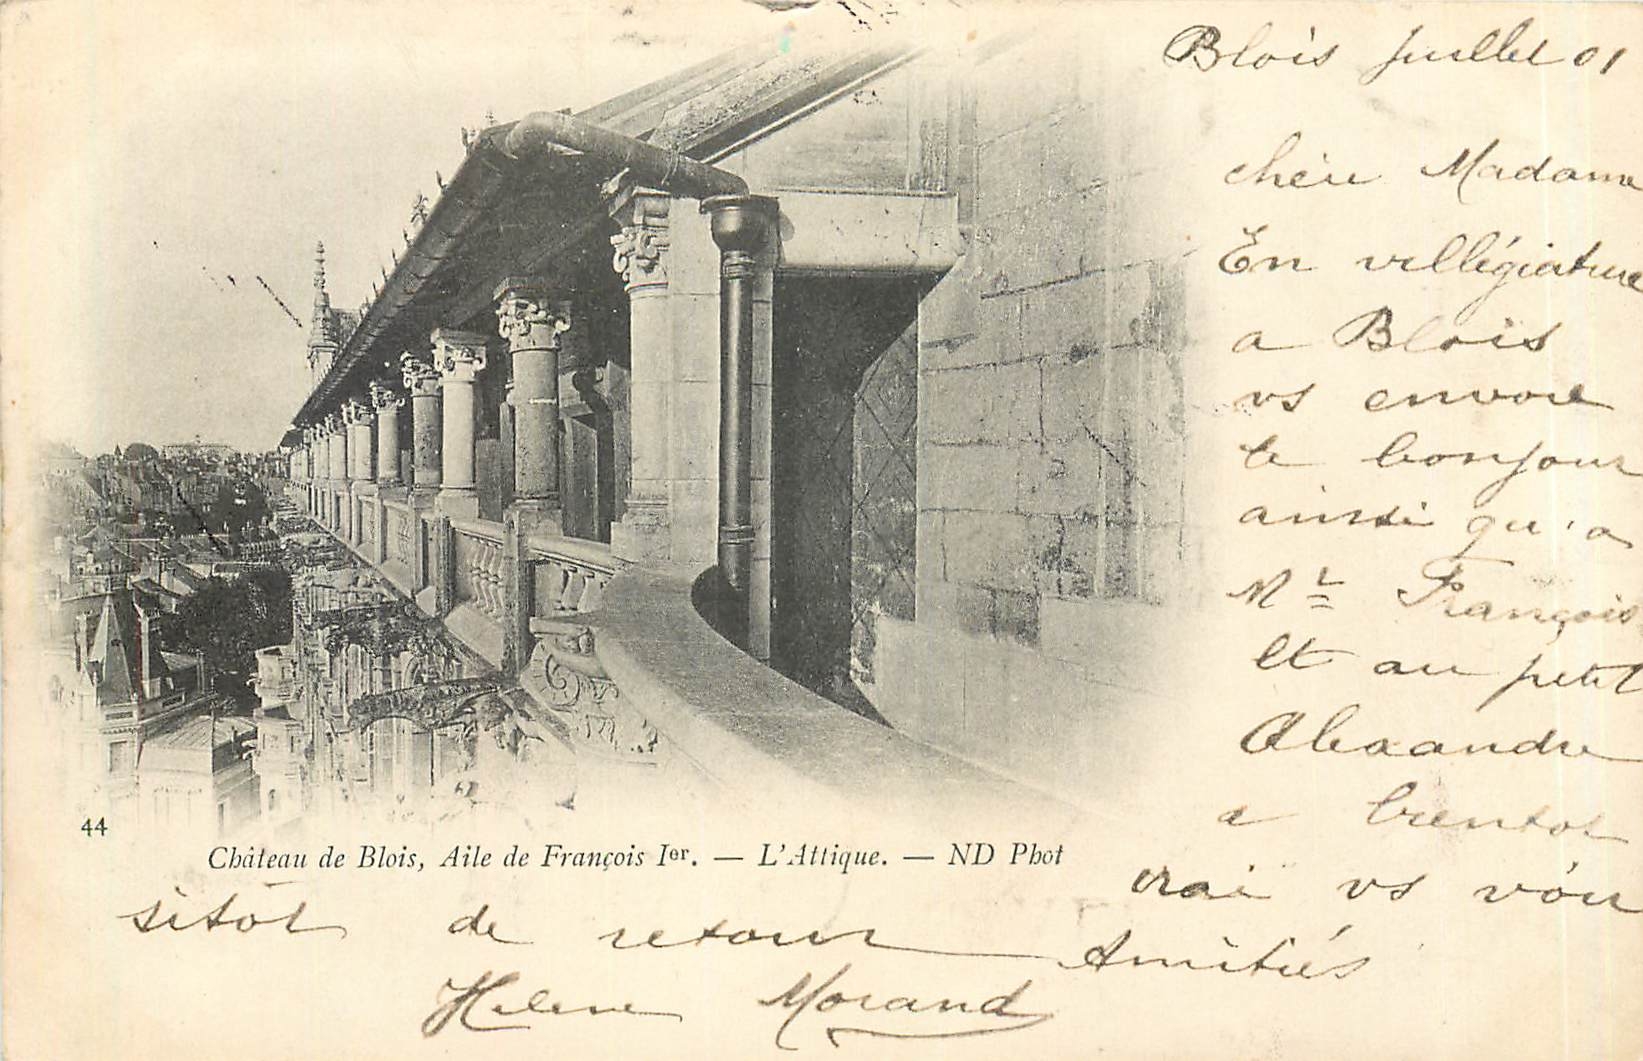 Blois juillet 01
chère Madame
En villégiature
a Blois
vs envoie
le bonjour
ainsi qu'a
Mr François
et au petit
Alexandre
a bientot
irai vs voir
sitôt de retour Amitiés
Helene Morand
44
Château de Blois, Aile de François Ier. — L'Attique. — ND Phot